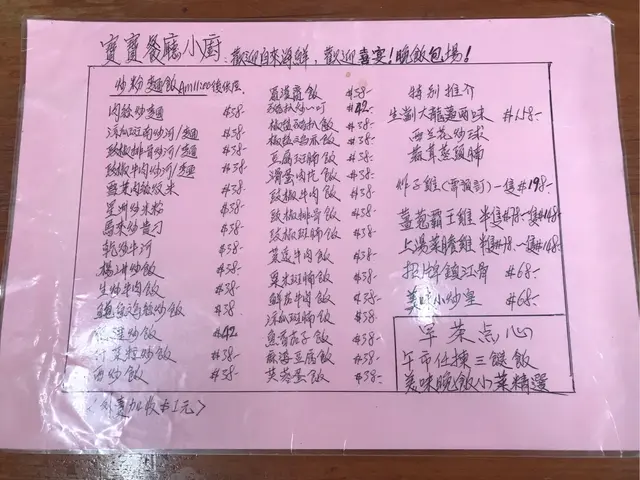 寶寶餐廳小廚. 歡迎自來海鮮, 歡迎喜宴!晚飯包場!
炒粉麵飯 Am11:00後供應
肉絲炒麵 $38-
涼瓜斑腩炒河/麵 $38-
豉椒排骨炒河/麵 $38-
豉椒牛肉炒河/麵 $38-
雪菜肉絲炆米 $38-
星洲炒米粉 $38-
馬來炒貴刁 $38-
乾炒牛河 $38-
楊州炒飯 $38-
生炒牛肉飯 $38-
鹹魚雞粒炒飯 $38-
炒飯 $42
菜粒炒飯 $38-
西炒飯 $38-
〈外賣加收$1元〉
飯 $38-
$42-
椒鹽雞扒飯 $38-
椒鹽雞飯 $38-
豆腐斑腩飯 $38-
滑蛋肉片飯 $38-
豉椒牛肉飯 $38-
豉椒排骨飯 $38-
豉椒斑腩飯 $38-
菜遠牛肉飯 $38-
粟米斑腩飯 $38-
鮮茄牛肉飯 $38-
涼瓜斑腩飯 $38-
魚香茄子飯 $38-
麻婆豆腐飯 $38-
芙蓉蛋飯 $38-
特別推介
生劏大龍躉兩味 $158-
西蘭花炒球
蒸頭腩
炸子雞(需預訂)一隻$198-
薑蔥霸王雞 半隻$78-一隻$148-
上湯菜膽雞 半隻$78-一隻$148-
招牌鎮江骨 $68-
美味小炒皇 $68-
早茶点心
午市任揀三餸飯
美味晚飯小菜精選